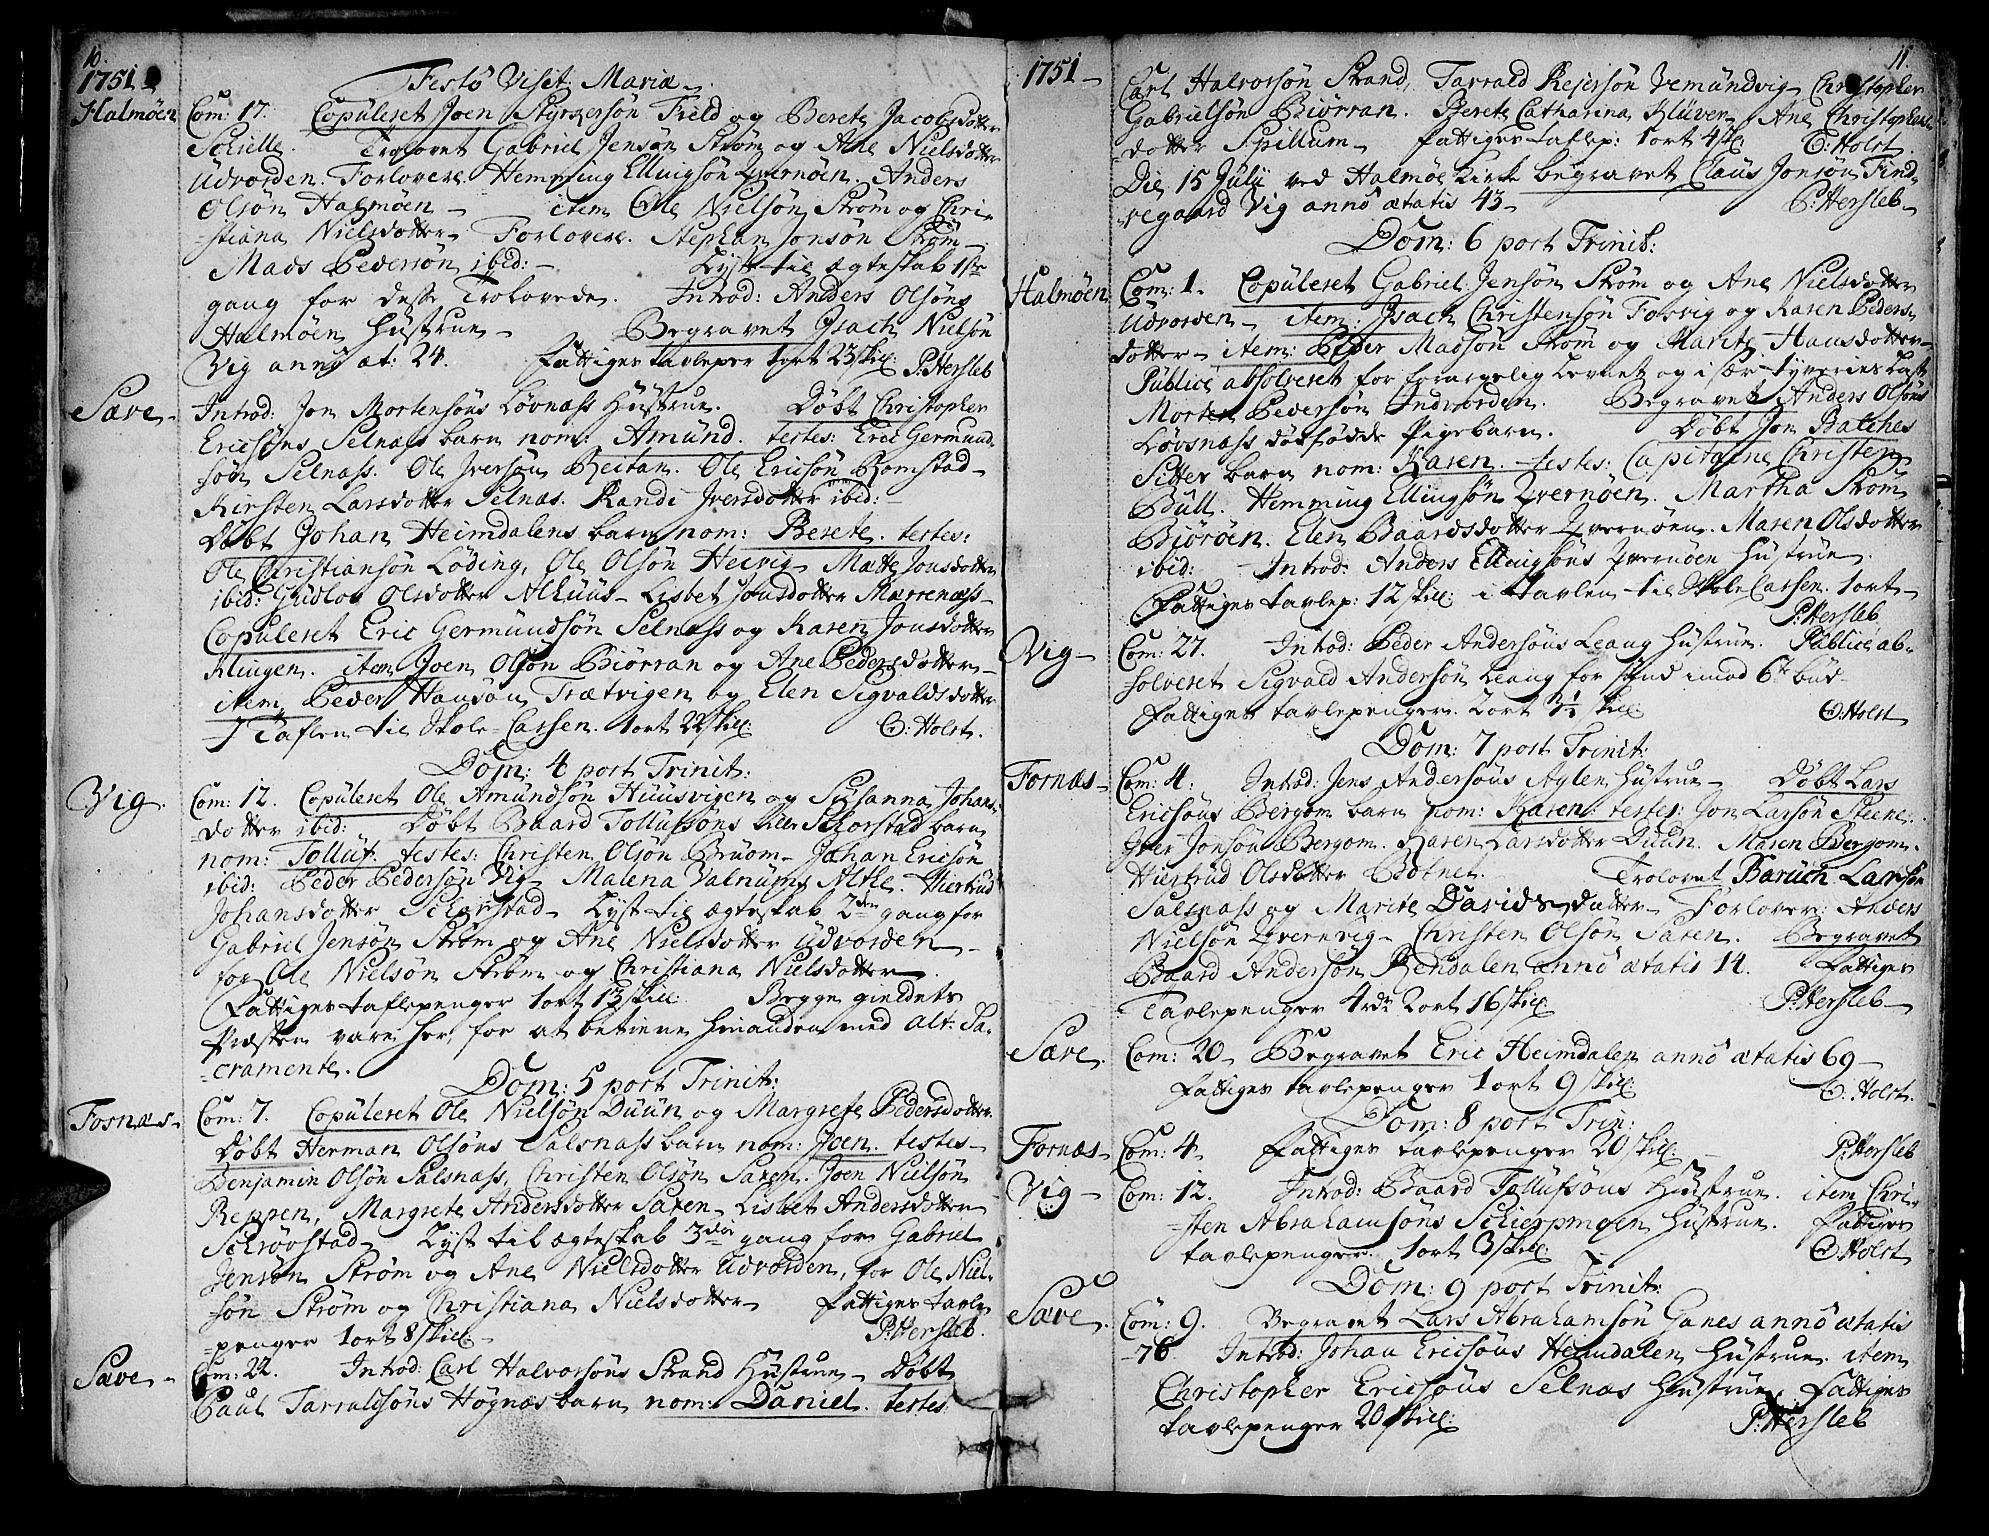 10.
1751
Festo Visit. Mariæ
Halmöen
Com: 17. Copuleret Joen Styrkersön Field og Berete Jacobsdotter
Schielle. Trolovet Gabriel Jensön Ström og Ane Nielsdotter
Udvorden. Forlovere. Hemming Ellingsön Qvernöen. Anders
Olsön Halmöen item Ole Nielsön Ström og Chri-
-stiana Nielsdotter Forlovere. Stephan Jonsön Ström
Mads Pedersön ibid: Lyst til ægteskab 1ste
gang for desse Trolovede. Introd: Anders Olsöns
Halmöen Hustrue Begravet Isach Nielsön
Vig anno æt: 24. Fattiges tavlepen 1 ort 23 skil: P: Hersleb
Sæve
Introd: Jon Mortensöns Lövnass Hustrue. Döbt Christopher
Ericsöns Selnass barn nom: Amund. testes: Eric Germund-
sön Selnass. Ole Iversön Reitan. Ole Ericsön Romstad
Kirsten Larsdotter Selnæs. Randi Iversdotter ibid:
Döbt Johan Heimdalens barn nom: Berete. testes:
Ole Christiansön Löding, Ole Olsön Hervig Mætte Jonsdotter
ibid: Gudlov Olsdotter Alhuus Lisbet Jonsdotter Marrenæss
Copuleret Eric Germundsön Selnass og Karen Jonsdotter
Klingen. item Joen Olsön Biörran og Ane Pedersdotter
item Peder Hansön Trætvigen og Elen Sigvaldsdotter
I Taflen til Skole-Cassen. 1 ort 22 skil: C: Holst.
Dom: 4 post Trinit:
Vig.
Com: 12. Copuleret Ole Amundsön Huusvigen og Susanna Johans
-dotter ibid: Döbt Baard Tollufsöns Schorstad barn
nom: Tolluf. testes: Christen Olsön Bruom Johan Ericsön
ibid: Peder Pedersön Vig Malena Valnums Althe. Hiertrud
Johansdotter Schorstad Lyst til ægteskab 2den gang for
Gabriel Jensön Ström og Ane Nielsdotter Udvorden
for Ole Nielsön Ström og Christiana Nielsdotter
Fattiges taflepenger 1 ort 13 skil: Begge gieldets
Præster vare her, for at betiene hinanden med Alt: Sa-
-cramente.
Dom: 5 post Trinit:
Fosnæs
Com: 7. Copuleret Ole Nielsön Duun og Margrete Pedersdotter.
Döbt Herman Olsöns Salsnass barn nom: Joen. testes
Benjamin Olsön Salsnass, Christen Olsön Saren. Joen Nielsön
Reppen, Margrete Andersdotter Saren Lisbet Andersdotter
Schrövstad Lyst til ægteskab 3die gang for Gabriel
Jensön Ström og Ane Nielsdotter Udvorden, for Ole Niel-
sön Ström og Christiana Nielsdotter Fattiges tavle
-penger 1 ort 8 skil: P: Hersleb.
Sæve
Com: 22. Introd: Carl Halvorsöns Strand Hustrue Döbt
Paul Tarraldsöns Högnæs barn nom: Daniel. testes
11.
1751
Carl Halvorsön Strand, Tarrald Reiersön Vemundvig Christopher
Gabrielsön Biörran. Berete Catharina Klüver, Ane Christophers
-dotter Spillum Fattiges taflep: 1 ort 4 sk: C: Holst.
Die 15 Julij ved Halmöe Kirke begravet Claus Jonsön Find
vegaard Vig anno ætatis 43 P: Hersleb
Dom: 6 post Trinit:
Halmöen
Com: 1. Copuleret Gabriel Jensön Ström og Ane Nielsdotter
Udvorden item: Isach Christensön Forvig og Karen Peders-
dotter item: Peder Madsön Ström og Marite Hansdotter
Publice absolveret for forargelig Levnet og i sær tyveries Last
Morten Pedersön Indvorden. Begravet Anders Olsöns
Lövsnass dödfödde Pigebarn. Döbt Jon Balches
Sitter barn nom: Karen. testes: Capitaine Christen
Bull. Hemming Ellingsön Qvernöen. Martha Ström
Biöröen. Elen Baardsdotter Qvernöen. Maren Olsdotter
ibid: Introd: Anders Ellingsöns Qvernöen Hustrue.
Fattiges tavlep: 12 skil: i tavlen til Skole Cassen. 1 ort
P: Hersleb
Vig
Com: 27. Introd: Peder Andersöns Leang Hustrue. Publice ab-
solveret Sigvald Andersön Leang for Synd imod 6te bud
Fattiges tavlepenger. 2 ort skil: C: Holst
Dom: 7 post Trinit:
Fornæs
Com: 4. Introd: Jens Andersöns Aglen Hustrue Döbt Lars
Ericsöns Bergom barn nom: Karen. testes: Jon Larsön Steene.
Iver Jonsön Bergom. Karen Larsdotter Duun. Maren Bergom.
Hiertrud Olsdotter Botnen. Trolovet Baruch Larssön
Salsnass og Marite Davidsdatter Forlover: Anders
Nielsön Qvernvig Christen Olsön Saren. Begravet
Baard Andersön Rendalen anno ætatis 14. Fattiges
Tavlepenger 4 rdr 2 ort 16 skil: P: Hersleb
Sæve.
Com: 20 Begravet Eric Heimdalen anno ætatis 69
Fattiges tavlepenger 1 ort 9 skil: C: Holst.
Dom: 8 post Trin:
Fornæs
Com: 4. Fattiges tavlepenger 20 skil: P: Hersleb
Vig
Com: 12. Introd: Baard Tollufsöns Hustrue. item Chri-
-sten Abrahamsöns Schieppingen Hustrue. Fattiges
tavlepenger 1 ort 3 skil: C: Holst
Dom: 9 post Trinit:
Sæve.
Com: 9. Begravet Lars Abrahamsön Ganes anno ætatis
76 Introd: Johan Ericsöns Heimdalen Hustrue. item
Christopher Ericsöns Selnæs Hustrue Fattiges
tavlepenger 20 skil: P: Hersleb